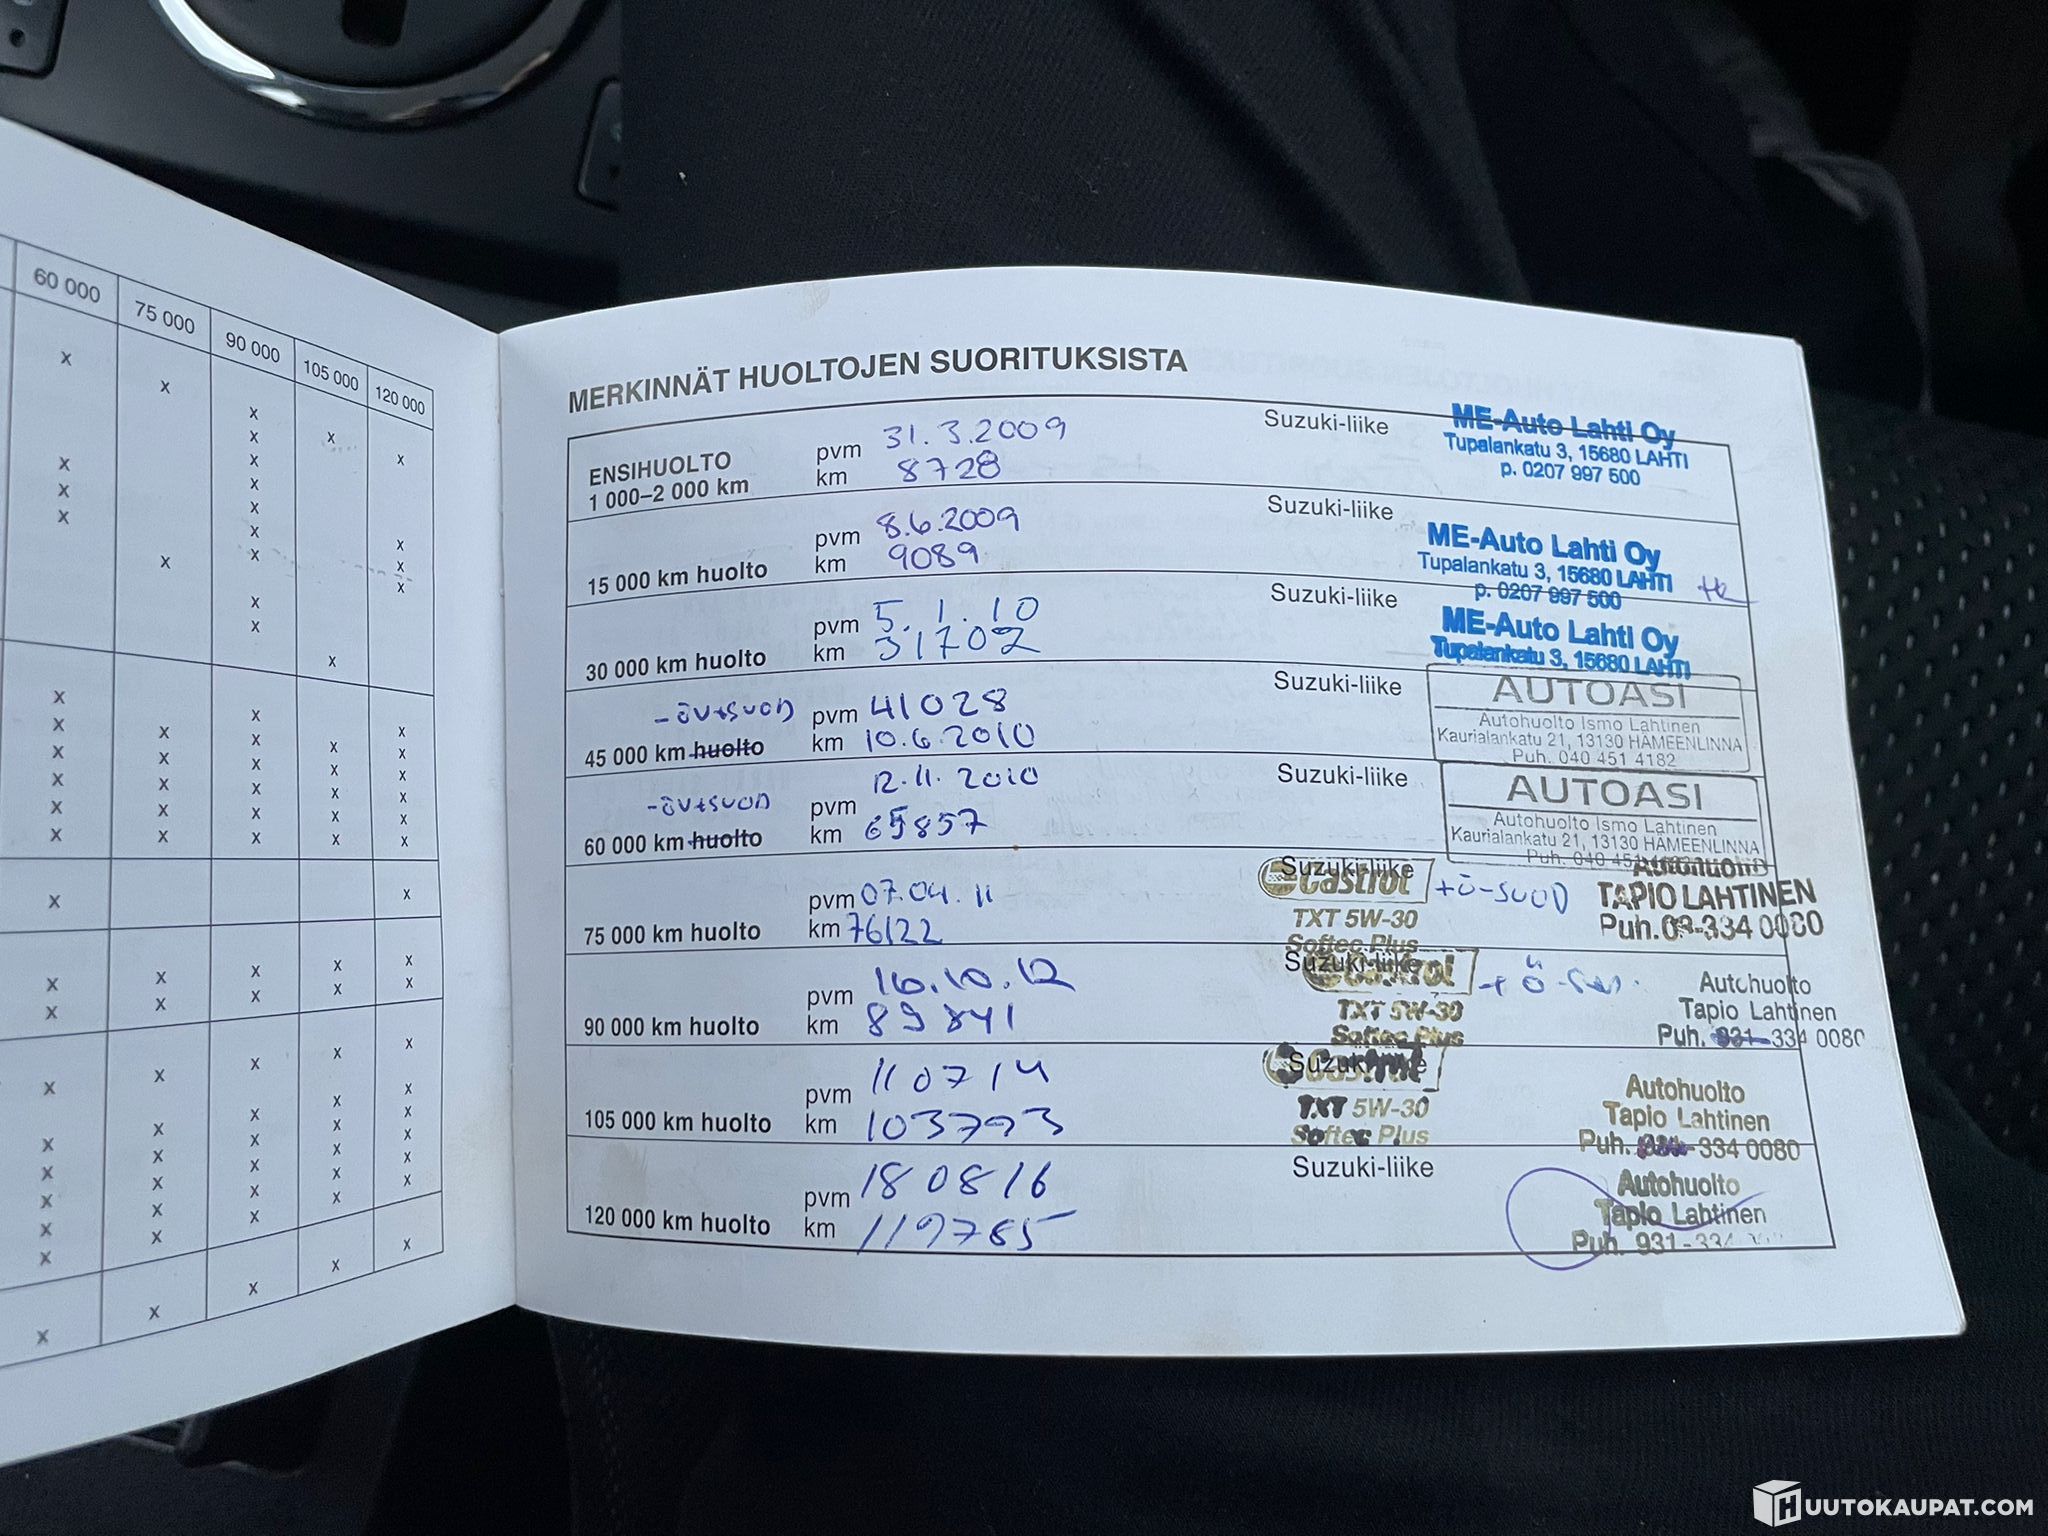 60 000 75 000 90 000 105 000 120 000
MERKINNÄT HUOLTOJEN SUORITUKSISTA
ENSIHUOLTO
1 000–2 000 km
pvm 31.3.2009
km 8728
Suzuki-liike
ME-Auto Lahti Oy
Tupalankatu 3, 15680 LAHTI
p. 0207 997 500
15 000 km huolto
pvm 8.6.2009
km 9089
Suzuki-liike
ME-Auto Lahti Oy
Tupalankatu 3, 15680 LAHTI
p. 0207 997 500
30 000 km huolto
pvm 5.1.10
km 31702
Suzuki-liike
ME-Auto Lahti Oy
Tupalankatu 3, 15680 LAHTI
-öv+suod
45 000 km huolto
pvm 41028
km 10.6.2010
Suzuki-liike
AUTOASI
Autohuolto Ismo Lahtinen
Kaurialankatu 21, 13130 HÄMEENLINNA
Puh. 040 451 4182
-öv+suod
60 000 km huolto
pvm 12.11.2010
km 65857
Suzuki-liike
AUTOASI
Autohuolto Ismo Lahtinen
Kaurialankatu 21, 13130 HÄMEENLINNA
Puh. 040 451
75 000 km huolto
pvm 07.04.11
km 76122
Suzuki-liike
Castrol
TXT 5W-30
Softec Plus
+ö-suod
Autohuolto
TAPIO LAHTINEN
Puh. 03-334 0080
90 000 km huolto
pvm 16.10.12
km 89841
Suzuki-liike
Castrol
TXT 5W-30
Softec Plus
Autohuolto
Tapio Lahtinen
Puh. 931-334 0080
105 000 km huolto
pvm 110714
km 103793
Suzuki-liike
Castrol
TXT 5W-30
Softec Plus
Autohuolto
Tapio Lahtinen
Puh. 334 0080
120 000 km huolto
pvm 180816
km 119785
Suzuki-liike
Autohuolto
Tapio Lahtinen
Puh. 931-334
HUUTOKAUPAT.COM